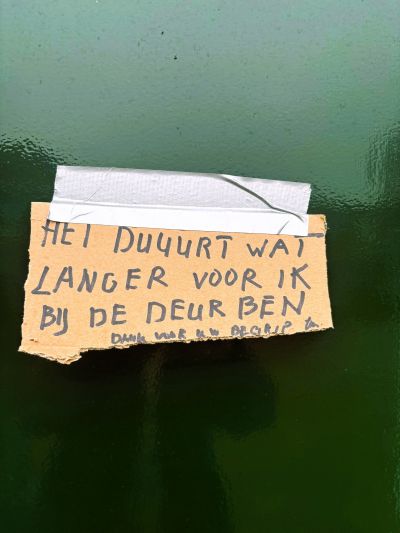 HET DUUURT WAT
LANGER VOOR IK
BIJ DE DEUR BEN
DANK VOOR UW BEGRIP